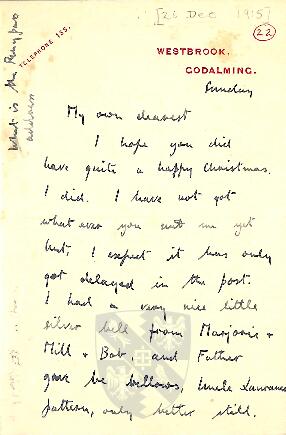 [26 Dec 1915]
22
TELEPHONE 155.
WESTBROOK,
GODALMING.
What is the
address
Sunday
My own dearest
I hope you did
have quite a happy Christmas.
I did. I have not got
what ever you sent me yet
but, I expect it has only
got delayed in the post.
I had a very nice little
silver bell from Marjorie &
Mill & Bob, and Father
gave me bellows, Uncle Lawrence
pattern, only better still.